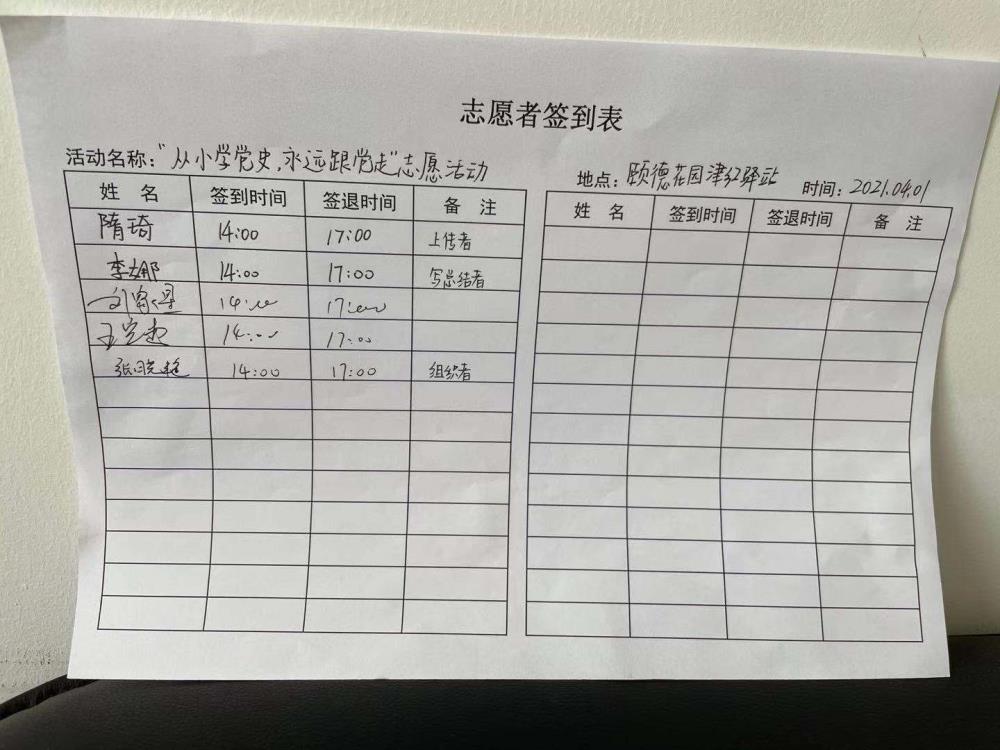 志愿者签到表
活动名称:"从小学党史,永远跟党走"志愿活动 地点:颐德花园津红驿站 时间:2021.04.01
姓 名 签到时间 签退时间 备 注 姓 名 签到时间 签退时间 备 注
隋琦 14:00 17:00 上传者
李娜 14:00 17:00 写总结者
14:00 17:00
14:00 17:00
张晓艳 14:00 17:00 组织者